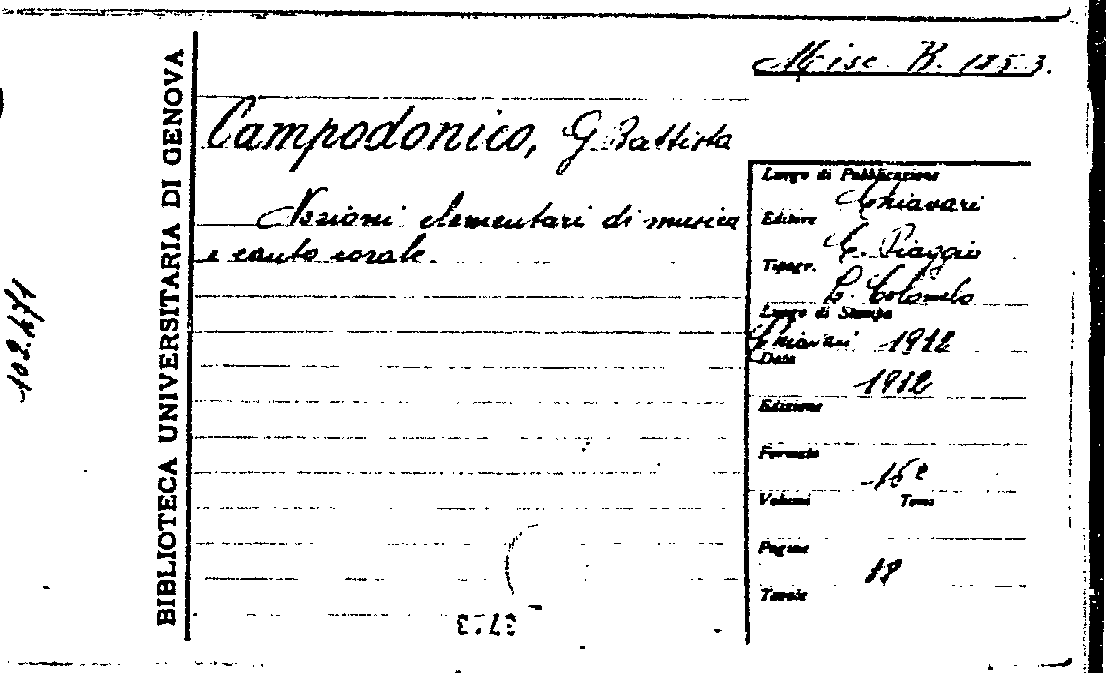 Misc. B. 1253.
BIBLIOTECA UNIVERSITARIA DI GENOVA
Campodonico, G. Battista
Nozioni elementari di musica
e canto corale.
Luogo di Pubblicazione
Chiavari
Editore
E. Piaggio
Tipogr.
C. Colombo
Luogo di Stampa
Chiavari 1912
Data
1912
Edizione
Formato
16º
Volumi Tomi
Pagine
18
Tavole
102.271